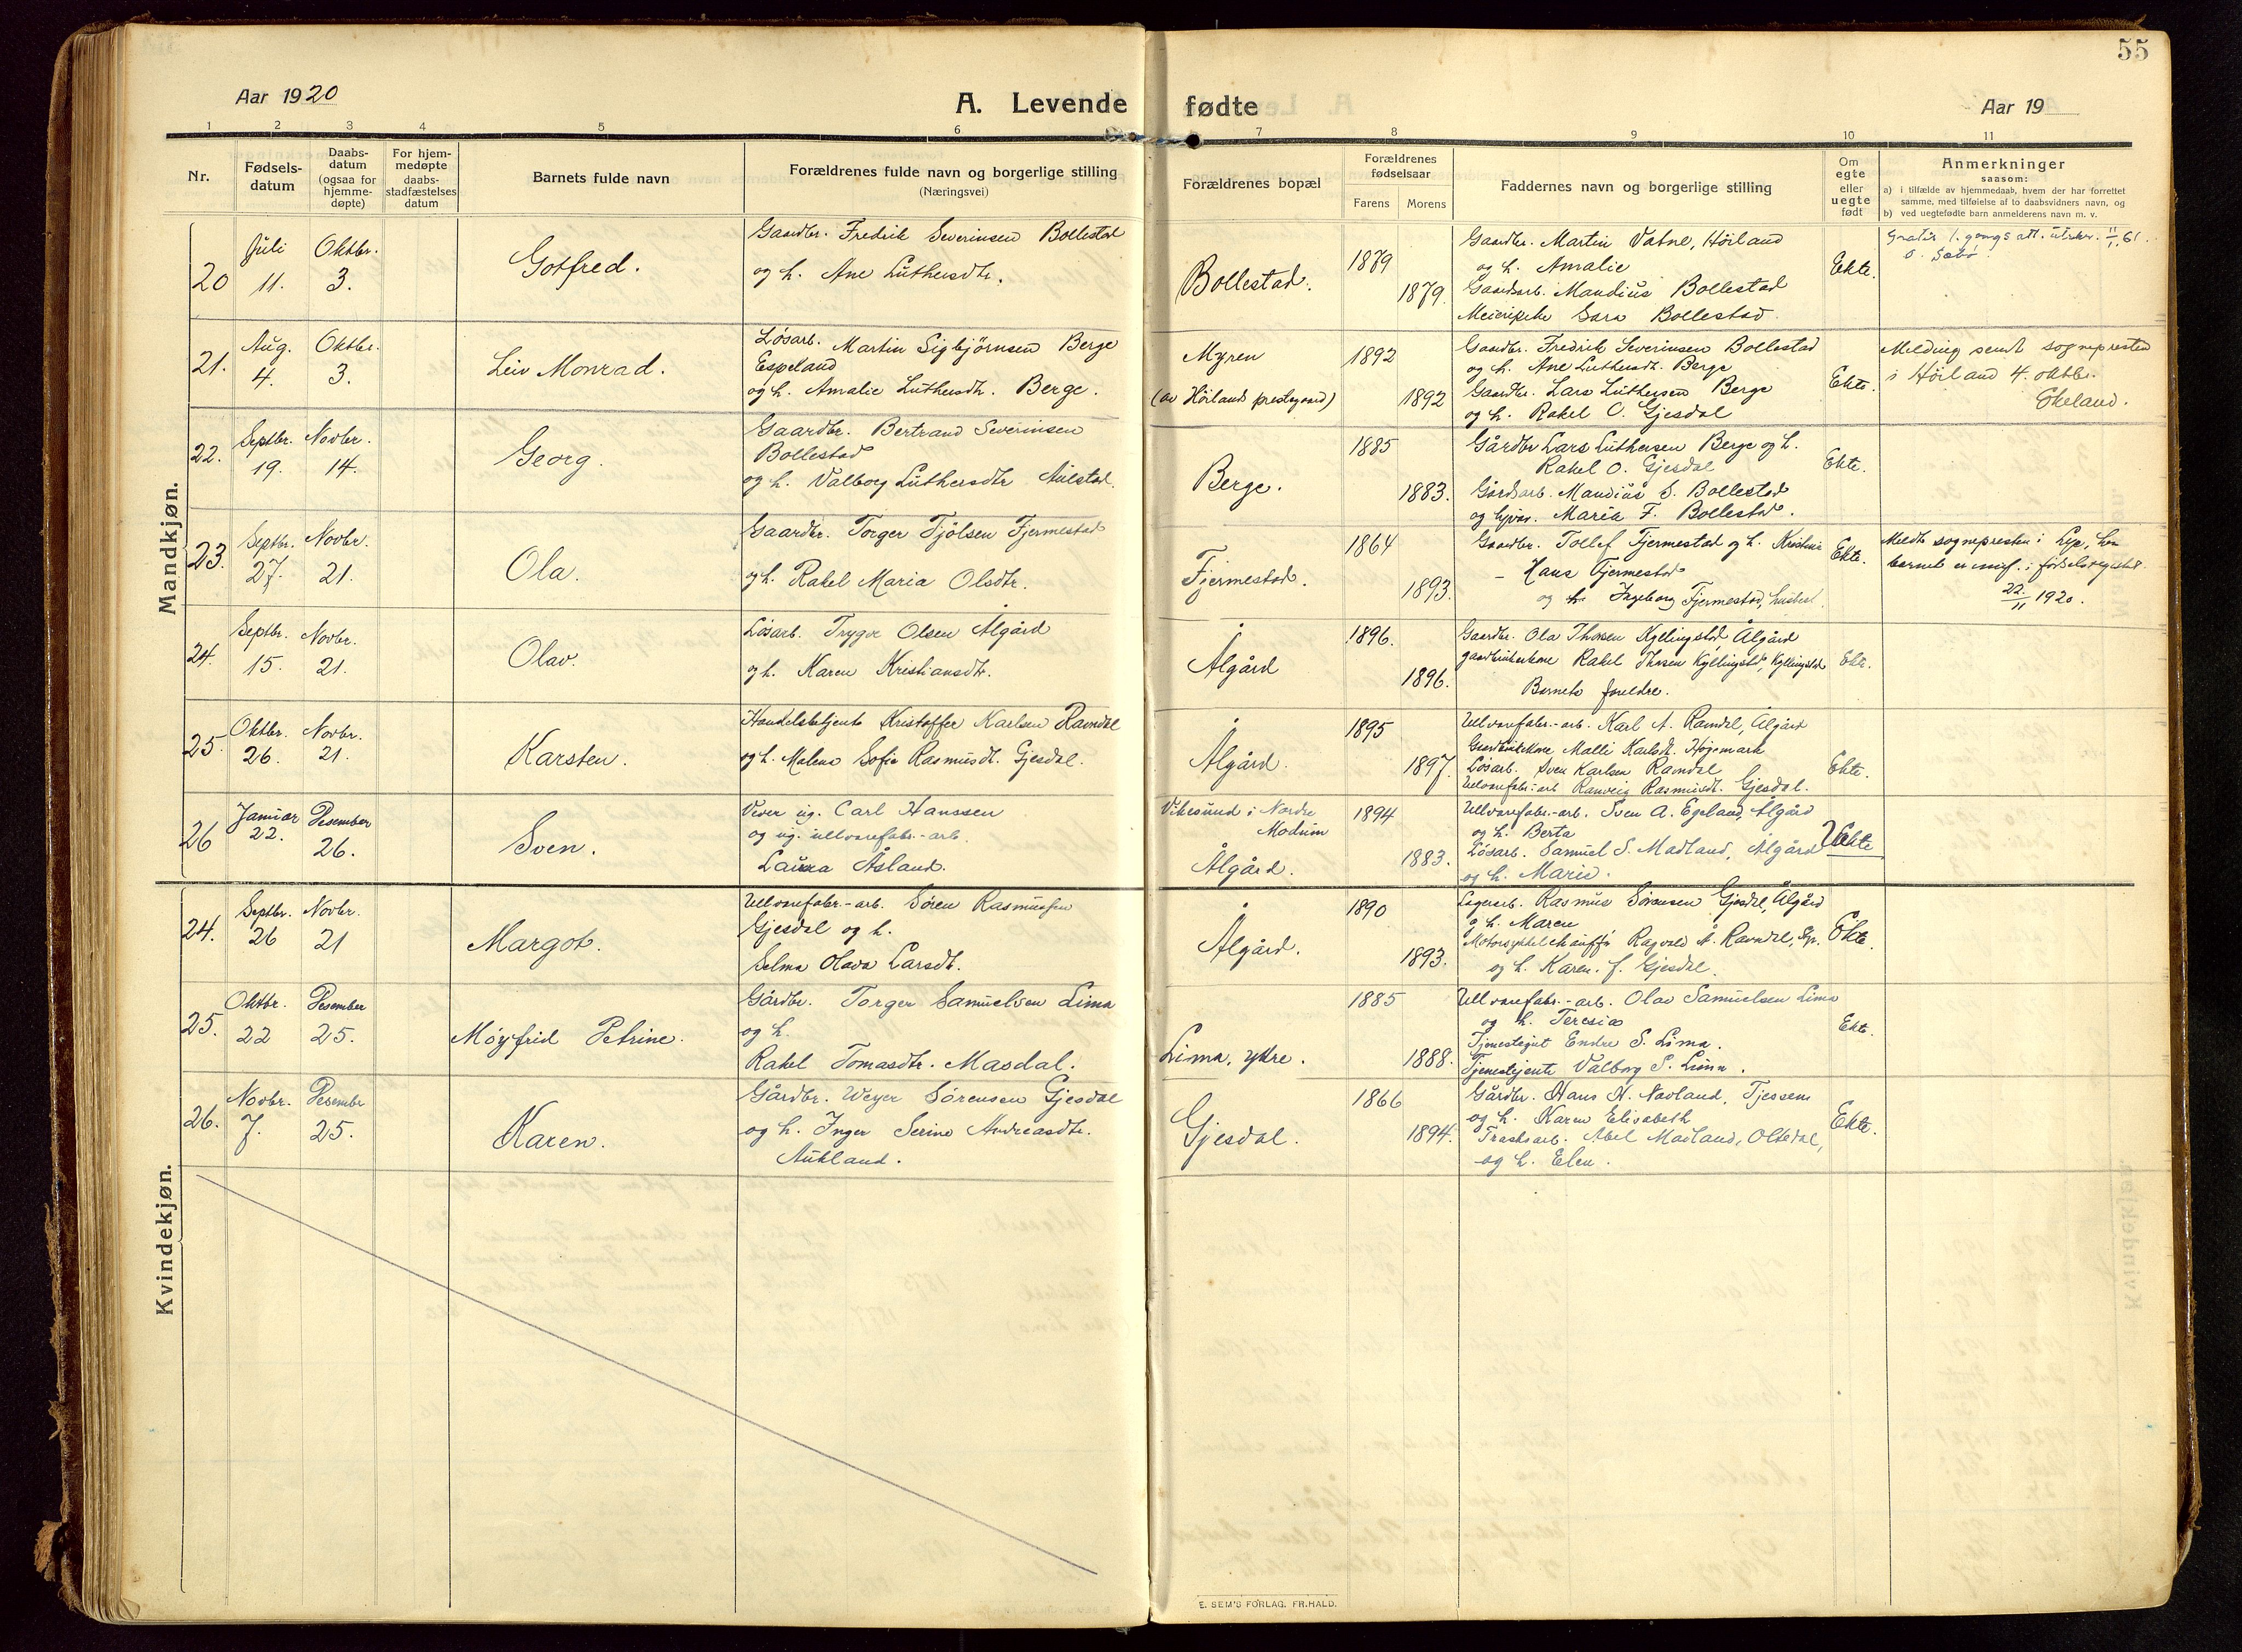 55
Aar 1920
A. Levende
fødte
Aar 19
1 2 3 4 5 6
7 8 9 10 11
Nr.
Fødsels-
datum
Daabs-
datum
(ogsaa for
hjemme-
døpte)
For hjem-
medøpte
daabs-
stadfæstelses
datum
Barnets fulde navn
Forældrenes fulde navn og borgerlige stilling
(Næringsvei)
Forældrenes bopæl
Forældrenes
fødselsaar
Farens
Morens
Faddernes navn og borgerlige stilling
Om
egte
eller
uegte
født
Anmerkninger
saasom:
a) i tilfælde av hjemmedaab, hvem der har forrettet
samme, med tilføielse af to daabsvidners navn, og
b) ved uegtefødte barn anmelderens navn m. v.
Mandkjøn.
20
Juli
11.
Oktbr.
3.
Gotfred.
Gaardbr. Fredrik Severinsen Bollestad
og h. Ane Luthersdtr.
Bollestad.
1879
1879.
Gaardbr. Martin Vatne, Höiland
og h. Amalie
Gaardsarb. Maudius Bollestad
Meieripike Sara Bollestad.
Ekte.
Gratis 1. gangs att. utskr. 11/1.61.
21.
Aug.
4.
Oktbr.
3.
Leiv Monrad.
Løsarb. Martin Sigbjørnsen Berge
Espeland
og h. Amalie Luthersdtr. Berge.
Myren
(av Høilands prestegaard)
1892
1892
Gaardbr. Fredrik Severinsen Bollestad
og h. Ane Luthersdt. Berge
Gaardbr. Lars Luthersen Berge
og h. Rakel O. Gjesdal
Ekte.
Melding sendt sognepresten
i Höiland 4. oktbr.
Ekeland.
22.
Septbr.
19.
Novbr.
14.
Georg.
Gaardbr. Bertrand Severinsen
Bollestad
og h. Valborg Luthersdtr Aulstad.
Berge.
1885
1883.
Gårdbr Lars Luthersen Berge og h.
Rakel O. Gjesdal
Gårdsarb. Maudius S. Bollestad
og Maria F. Bollestad.
Ekte.
23.
Septbr.
27.
Novbr.
21.
Ola.
Gaardbr. Torger Tjölsen Fjermestad
og h. Rakel Maria Olsdtr.
Fjermestad.
1864
1893.
Gaardbr. Tollef Fjermestad og h. Kristine
— Hans Fjermestad
og h. Ingeborg Fjermestad,
Ekte.
Meldt sognepresten i Lye,
barnet er innf. i fødselsregistret.
22/11 1920.
24.
Septbr.
15.
Novbr.
21.
Olav.
Løsarb. Trygve Olsen Ålgård
og h. Karen Kristiansdtr.
Ålgård
1896.
1896.
Gaardbr. Ola Thorsen Kyllingstad, Ålgård
gaardbrukerkone Rakel Thorsen Kyllingstad, Kyllingstad
Barnets foreldre.
Ekte.
25.
Oktbr.
26.
Novbr.
21.
Karsten.
Handelsbetjent Kristoffer Karlsen Ravndal
og h. Malene Sofie Rasmusdt. Gjesdal.
Ålgård.
1895
1897.
Ullvarefabr.-arb. Karl A. Ravndal, Ålgård
Gaardbrukerkone Malli Karlsdt. Høgemark
Løsarb. Sven Karlsen Ravndal
Ullvarefabr.-arb. Ranveig Rasmusdt. Gjesdal.
Ekte.
26
Januar
22.
Desember
26.
Sven.
Vever ug. Carl Hanssen
og ug. ullvarefabr.-arb.
Laura Åsland.
Vikesund i Nordre
Modum
Ålgård.
1894
1883.
Ullvarefabr.-arb. Sven A. Egeland, Ålgård
og h. Berta
Løsarb. Samuel S. Madland, Ålgård
og h. Marie.
Uekte
Kvindekjøn.
24.
Septbr.
26
Novbr.
21
Margot.
Ullvarefabr.-arb. Sören Rasmussen
Gjesdal og h.
Selma Olava Larsdt.
Ålgård.
1890
1893.
Lagerarb. Rasmus Sörensen Gjesdal, Ålgård
og h. Maren
Motorsykkelchauffö Ragvald A. Ravndal,
og h. Karen. f. Gjesdal.
Ekte.
25.
Oktbr.
22
Desember
25.
Møyfrid Petrine.
Gårdbr. Torger Samuelsen Lima
og h.
Rakel Tomasdtr. Masdal.
Lima, ytre.
1885
1888.
Ullvarefabr.-arb. Olav Samuelsen Lima
og h. Teresia
Tjenestegut Endre S. Lima.
Tjenestejente Valborg S. Lima.
Ekte.
26.
Novbr.
7.
Desembr
25.
Karen.
Gårdbr. Weyer Sörensen Gjesdal
og h. Inger Serine Andreasdtr.
Aukland.
Gjesdal.
1866
1894.
Gårdbr. Hans H. Navland, Tjessem
og h. Karen Elisabeth
Træskoarb. Abel Madland, Oltedal,
og h. Elen.
Ekte.
E. SEM'S FORLAG, FR.HALD.